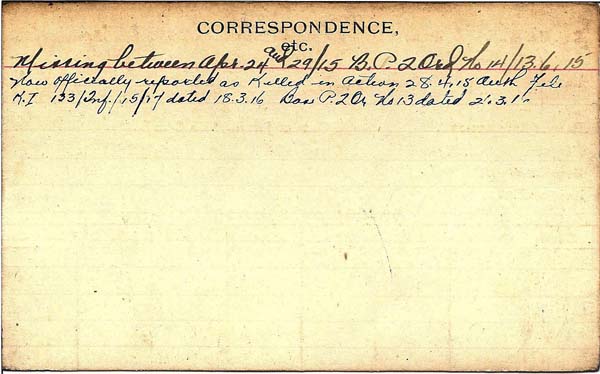 CORRESPONDENCE,
etc.
Missing between Apr. 24 and 29/15 B. P. 2 Ord No 14/13.6.15
Now officially reported as Killed in Action 28.4.15 Auth File
K.I 133/Inf/15/17 dated 18.3.16 P. 2 Or No 13 dated 2.3.1